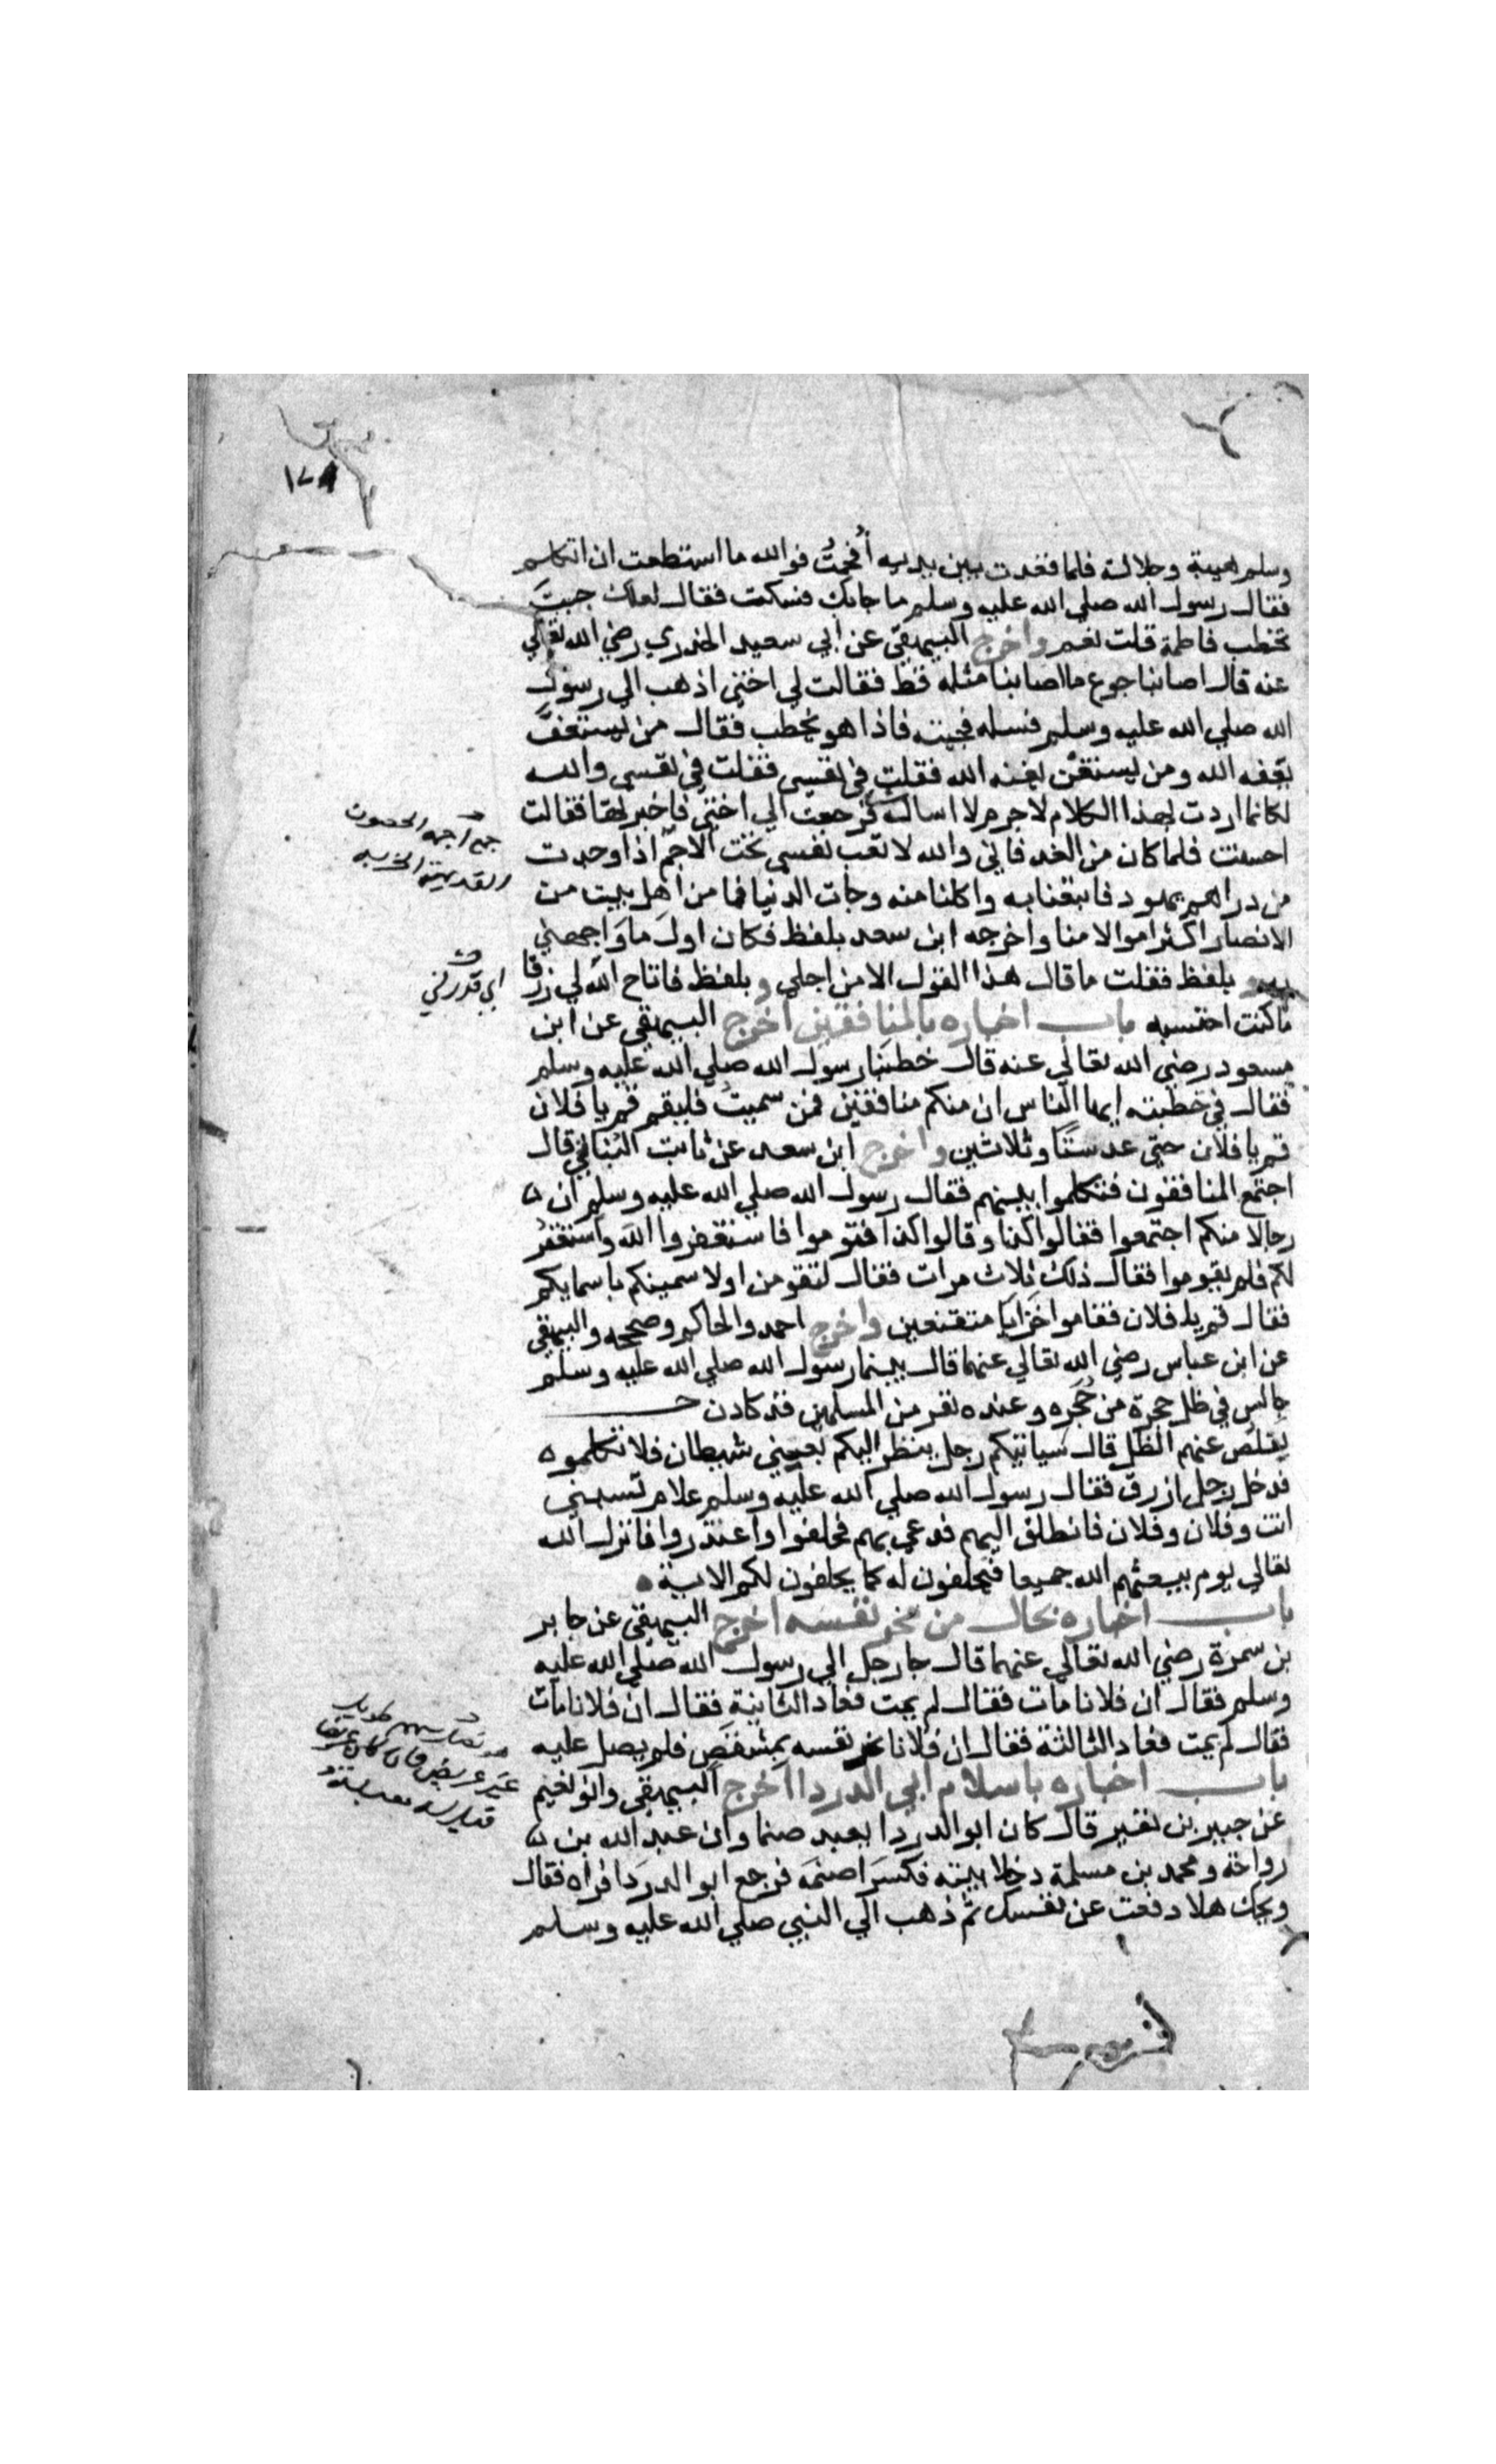 ١٧٨
وسلم هيبة وجلالة فلما قعدت بين يديه أفحمت فوالله ما استطعت ان اتكلم
فقال رسول الله صلي الله عليه وسلم ما جابك فسكت فقال لعلك جيت
تخطب فاطمة قلت نعم واخرج البيهقي عن ابي سعيد الخدري رضي الله تعالي
عنه قال اصابنا جوع ما اصابنا مثله قط فقالت لي اختي اذهب الي رسول
الله صلي الله عليه وسلم فسله فجيته فاذا هو يخطب فقال من يستعف
يعفه الله ومن يستغن يغنه الله فقلت في نفسي فقلت في نفسي والله
لكانما اردت بهذا الكلام لا جرم لا اساله فرجعت الي اختي فاخبرتها فقالت
احسنت فلما كان من الغد فاني والله لا تعب نفسي تحت الاجم اذا وجدت
من دراهم يهود فابتعنا به واكلنا منه وجات الدنيا فما من اهل بيت من
الانصار اكثر اموالا منا واخرجه ابن سعد بلفظ فكان اول ما واجهني
بلفظ فقلت ما قال هذا القول الا من اجلي وبلفظ فاتاح الله لي رزقا
ما كنت احتسبه باب اخباره بالمنافقين اخرج البيهقي عن ابن
مسعود رضي الله تعالي عنه قال خطبنا رسول الله صلي الله عليه وسلم
فقال في خطبته ايها الناس ان منكم منافقين فمن سميت فليقم قم يا فلان
قم يا فلان حتي عد ستا وثلاثين واخرج ابن سعد عن ثابت البناني قال
اجتمع المنافقون فتكلموا بينهم فقال رسول الله صلي الله عليه وسلم ان
رجالا منكم اجتمعوا فقالوا كذا وقالوا كذا فقوموا فاستغفروا الله واستغفر
لكم فلم يقوموا فقال ذلك ثلاث مرات فقال لتقومن اولا سمينكم باسمايكم
فقال قم يا فلان فقاموا خزايا متقنعين واخرج احمد والحاكم وصححه والبيهقي
عن ابن عباس رضي الله تعالي عنهما قال بينما رسول الله صلي الله عليه وسلم
جالس في ظل حجرة من حجره وعنده نفر من المسلمين قد كادن
يقلص عنهم الظل قال سياتيكم رجل ينظر اليكم بعيني شيطان فلا تكلموه
فدخل رجل ازرق فقال رسول الله صلي الله عليه وسلم علام تسبني
انت وفلان وفلان فانطلق اليهم فدعي بهم فحلفوا واعتذروا فانزل الله
تعالي يوم يبعثهم الله جميعا فيحلفون له كما يحلفون لكم الاية
باب اخباره بحال من نحر نفسه اخرج البيهقي عن جابر
بن سمرة رضي الله تعالي عنهما قال جا رجل الي رسول الله صلي الله عليه
وسلم فقال ان فلانا مات فقال لم يمت فعاد الثانية فقال ان فلانا مات
فقال لم يمت فعاد الثالثة فقال ان فلانا نحر نفسه بمشقص فلم يصل عليه
باب اخباره باسلام ابي الدردا اخرج البيهقي وابو نعيم
عن جبير بن نفير قال كان ابو الدردا يعبد صنما وان عبد الله بن
رواحة ومحمد بن مسلمة دخلا بيته فكسرا صنمه فرجع ابو الدردا فراه فقال
ويحك هلا دفعت عن نفسك ثم ذهب الي النبي صلي الله عليه وسلم
جمع اجمه الحصون
اي قدر لي